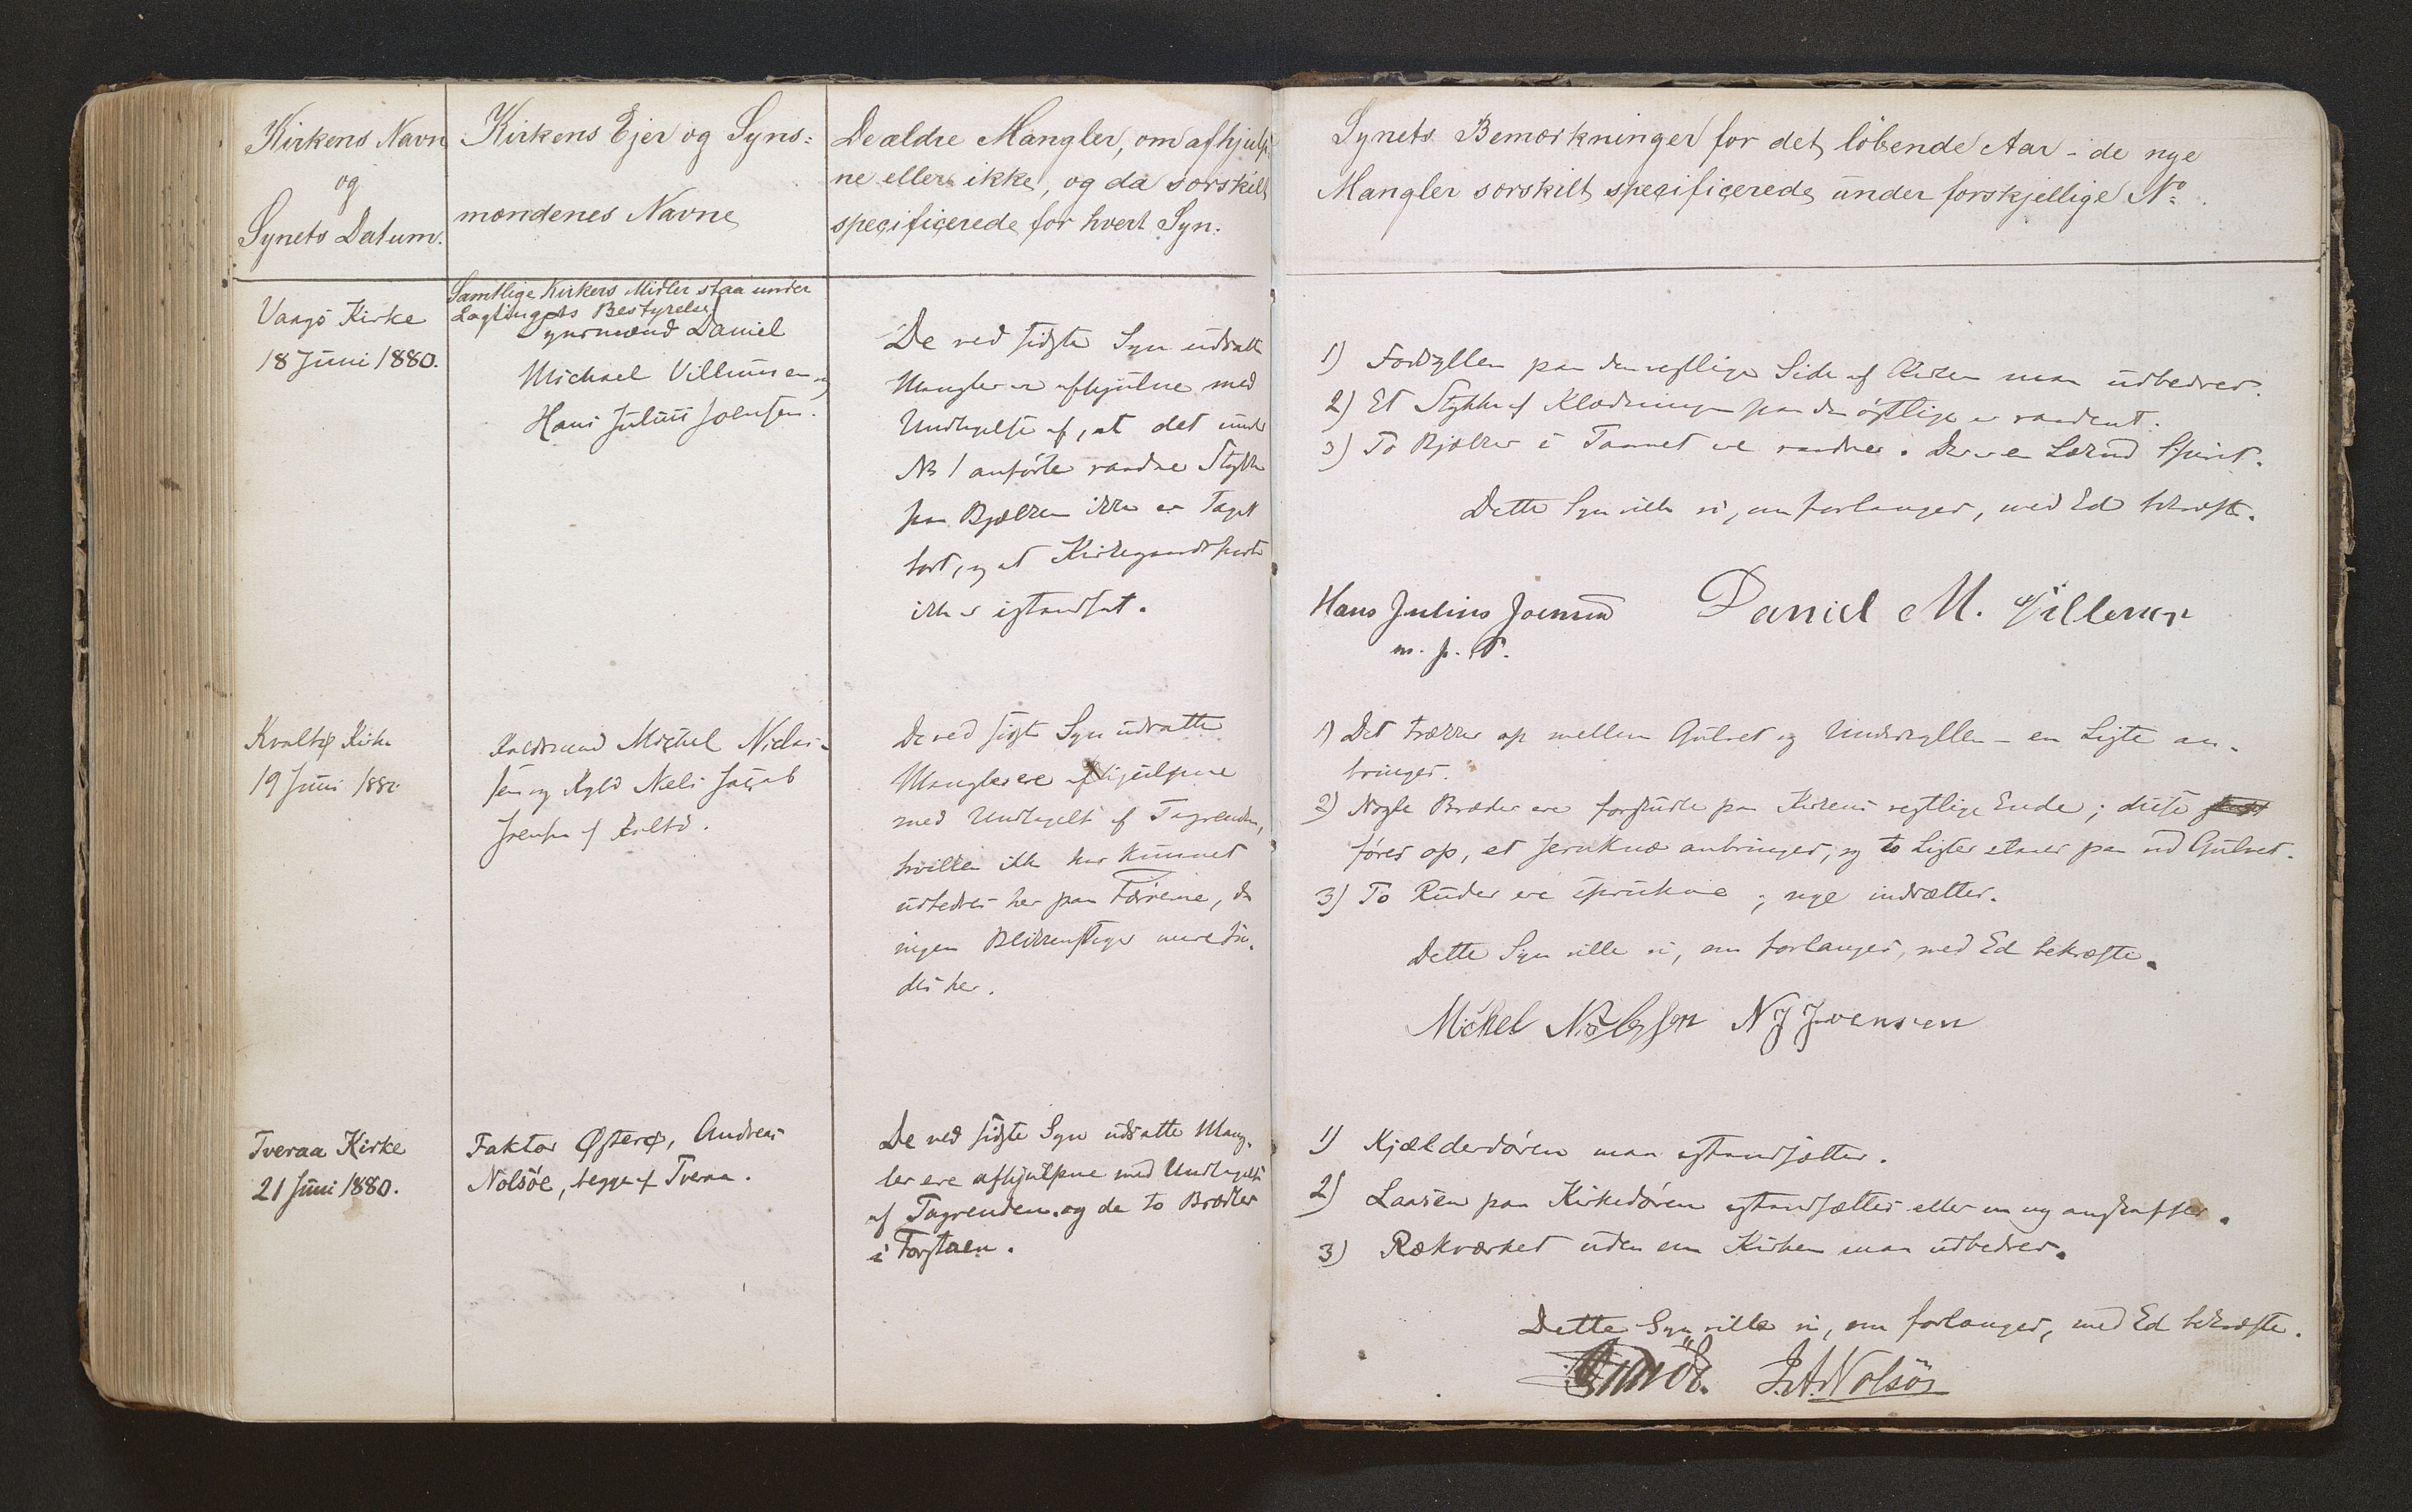 Kirkens Navn
og
Synets Datum.
Kirkens Ejer og Syns=
mændenes Navne
De ældre Mangler, om afhjulp=
ne eller ikke, og da særskilt
specificerede for hvert Syn.
Synets Bemærkninger for det løbende Aar - de nye
Mangler særskilt specificerede under forskjellige No.
Vaagø Kirke
18 Juni 1880.
Samtlige Kirkers Midler staa under
Lagtingets Bestyrelse
Synsmænd Daniel
Michael Villumsen og
Hans Julius Joensen.
De ved sidste Syn udsatte
Mangler er afhjulpne med
Undtagelse af, at det under
No 1 anførte raadne Stykke
paa Bjælken ikke er taget
bort, og at Kirkegaards
ikke er istandsat.
1) Fodsyllen paa den vestlige Side af Kirken maa udbedres.
2) Et Stykke af Klædningen paa den østlige er raadent.
3) To Bjælker i Taarnet ere raadne.
Dette Syn ville vi, om forlanges, med Ed bekræfte.
Hans Julius Joensen Daniel M. Villumsen
m. p. P.
Kvalbø Kirke
19 Juni 1880
Michel Niclas-
sen og Niels Jacob
Joensen af Kvalbø.
De ved sidste Syn udsatte
Mangler ere afhjulpne
med Undtagelse af Tagrenden,
hvilken ikke har kunnet
udbedres her paa Færøerne, da
ingen Blikkenslager mere fin-
des her.
1) Det trækker op mellem Gulvet og Undersyllen - en Liste an-
bringes.
2) Nogle Bræder ere forskudte paa Kirkens vestlige Ende; disse
føres op, et Jernknæ anbringes, og to Lister slaaes paa ved Gulvet.
3) To Ruder ere sprukne; nye indsættes.
Dette Syn ville vi, om forlanges, med Ed bekræfte.
Michel Niclassen N J Joensen
Tveraa Kirke
21 Juni 1880.
Faktor Østerø, Andreas
Nolsöe, begge af Tveraa.
De ved sidste Syn udsatte Mang-
ler ere afhjulpne med Undtagelse
af Tagrenden og de to Brædder
i Forstuen.
1) Kjælderdøren maa istandsættes.
2) Laasen paa Kirkedøren istandsættes eller en ny anskaffes.
3) Rækværket uden om Kirken maa udbedres.
Dette Syn ville vi, om forlanges, med Ed bekræfte.
J. A. Nolsöe